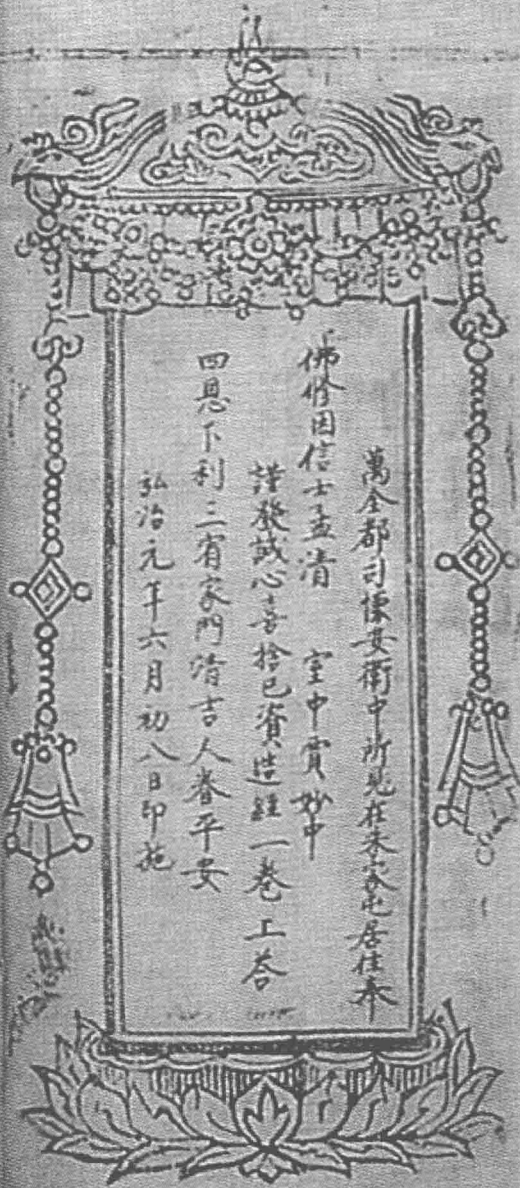 萬全都司懷安衛中所見在朱家屯居住奉
佛修因信士孟清　室中賈妙中
謹發誠心喜捨己資造經一卷上荅
四恩下利三宥家門清吉人眷平安
弘治元年六月初八日印施